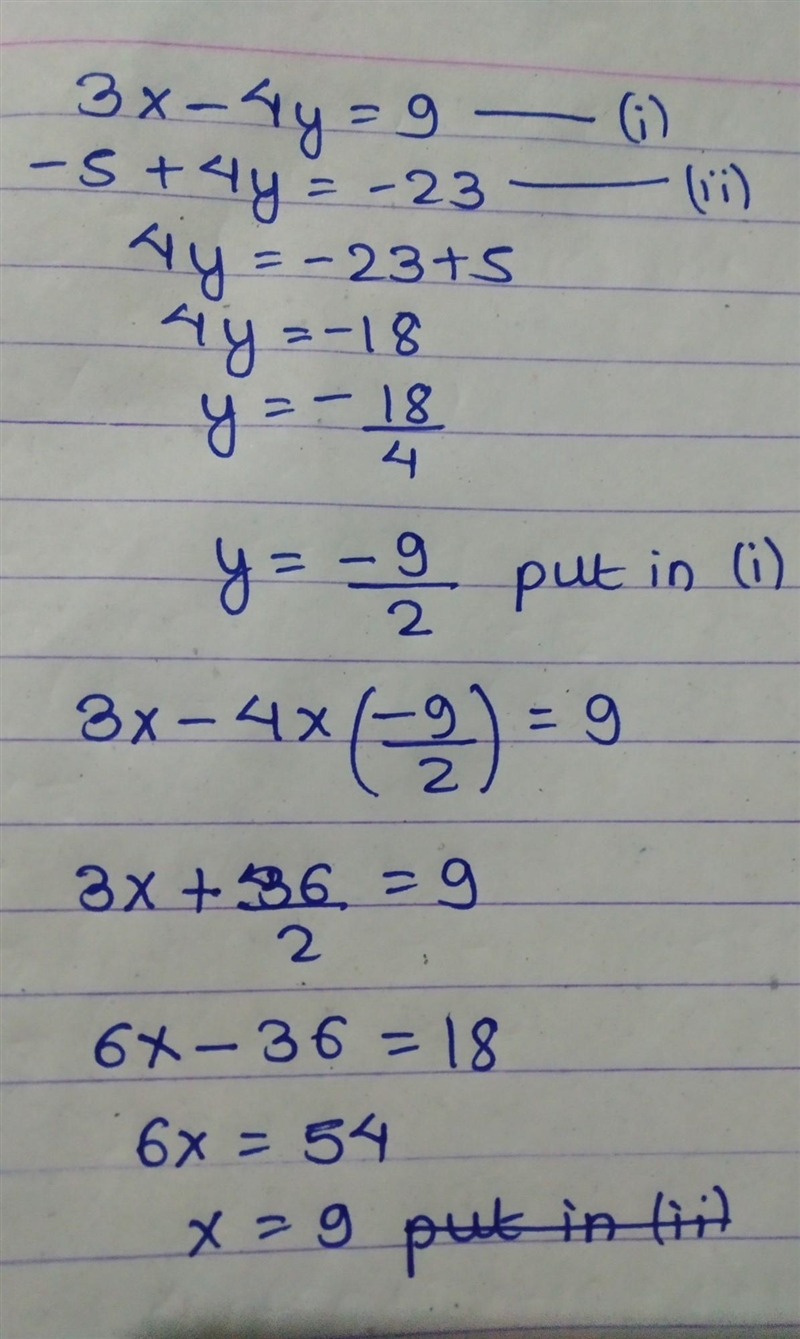 3x - 4y = 9 —— (i)
-5 + 4y = -23 —— (ii)
4y = -23+5
4y = -18
y = - 18/4
y = -9/2 put in (i)
3x - 4x(-9/2) = 9
3x + 36/2 = 9
6x - 36 = 18
6x = 54
x = 9 put in (ii)